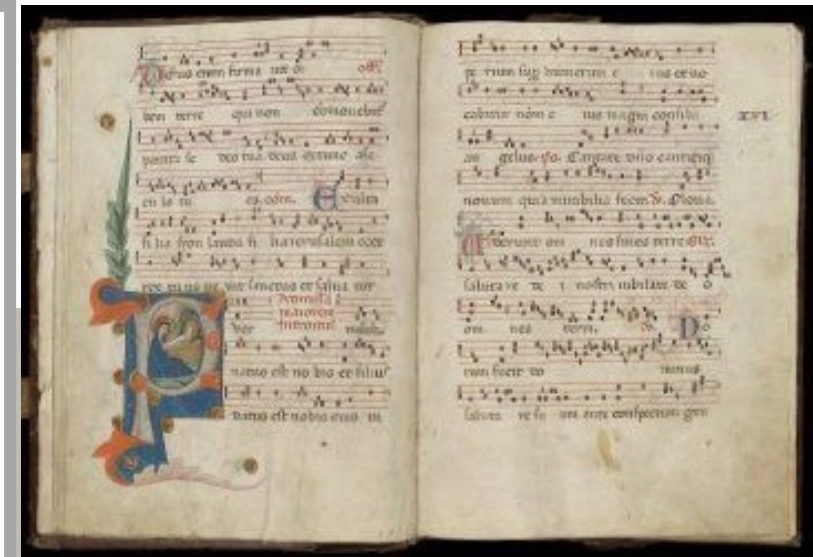 enim firma uit or
bem terre qui non comouebit
parata se des tua deus
cu lo tu es. com. Exulta
fi lia syon lauda fi lia ierusalem ecce
rex tu us ue nit sanctus et salua tor
maiorem
Introitus
natus est no bis et filius
datus est nobis cuius im
pe rium sup humerum e ius et uo
cabitur nom e ius magni consilii
XVI
an gelus. ps. Cantate dno canticu
nouum quia mirabilia fecit. Gloria.
derunt om nes fines terre
salutare de i nostri iubilate de o
om nes terra.
tum fecit do minus
saluta re su um ante conspectum gen